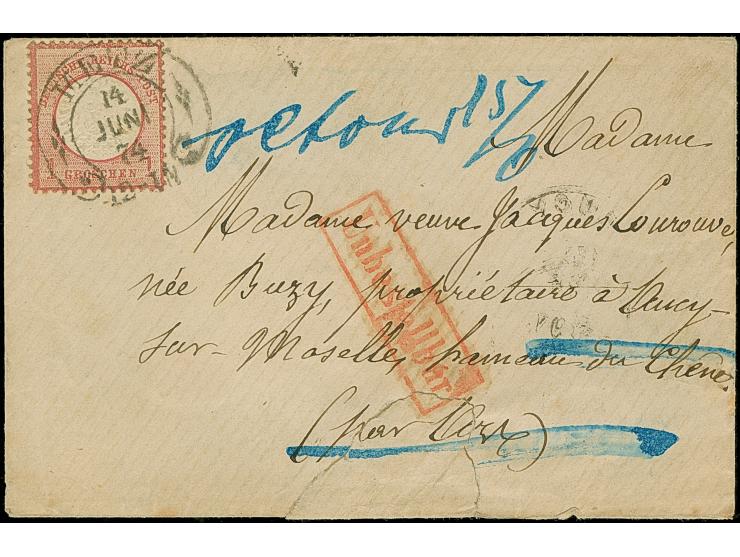 DEUTSCHE REICHS-POST
14
JUN
74
12-1N
GROSCHEN
retour 15/
Madame
Madame veuve Jacques Courouve,
née Buzy, propriétaire à Ancy-
sur-Moselle, hameau du Chêne.
(par Metz)
Unbestellbar